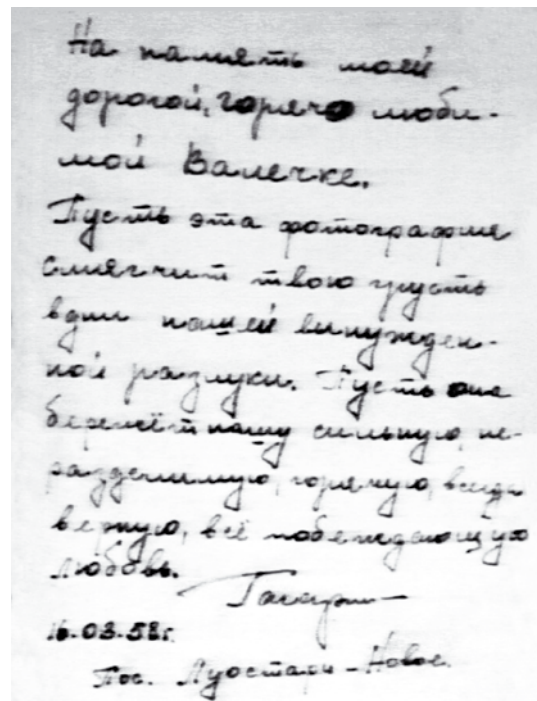 На память моей
дорогой, горячо люби-
мой Валечке.
Пусть эта фотография
смягчит твою грусть
в дни нашей вынужден-
ной разлуки. Пусть она
бережёт нашу сильную, не-
разделимую, горячую, всегда
верную, всё побеждающую
любовь.
Гагарин
16.03.58г.
Пос. Луостари-Новое.